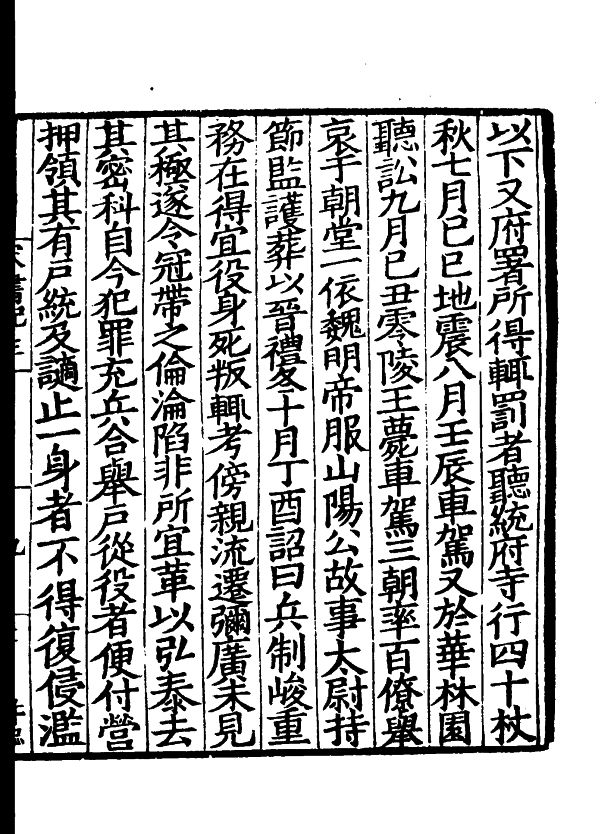 以下又府署所得輒罰者聽統府寺行四十杖
秋七月己巳地震八月壬辰車駕又於華林園
聽訟九月己丑零陵王薨車駕三朝率百僚舉
哀于朝堂一依魏明帝服山陽公故事太尉持
節監護葬以晉禮冬十月丁酉詔曰兵制峻重
務在得宜役身死叛輒考傍親流遷彌廣未見
其極遂令冠帶之倫淪陷非所宜革以弘泰去
其密科自今犯罪充兵合舉戶從役者便付營
押領其有戶統及謫止一身者不得復侵濫